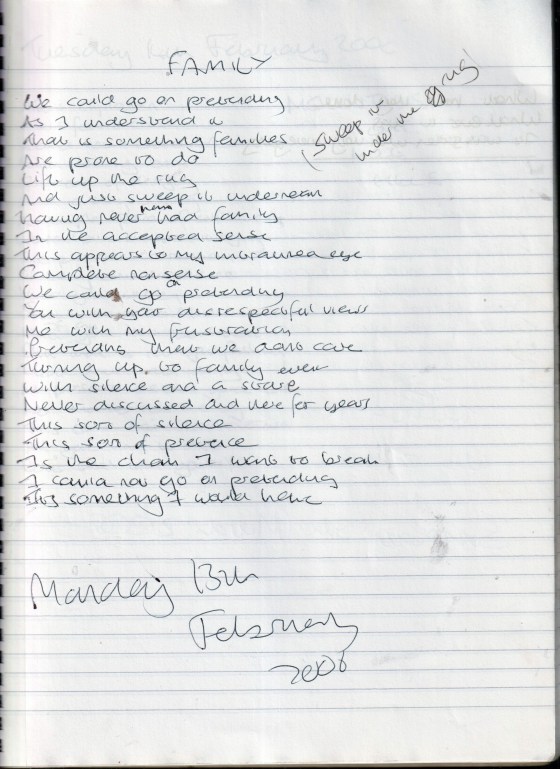 FAMILY
(Sweep it
under the rug)
We could go on pretending
As I understand it
That is something families
Are prone to do
Lift up the rug
And just sweep it underneath
Having never had family
In the accepted sense
This appears to my untrained eye
Complete nonsense
We could go on pretending
You with your disrespectful views
Me with my frustration
Pretending that we dont care
Turning up to family
With silence and a stare
Never discussed and here for years
This sort of silence
This sort of pretence
Is the chain I want to break
I could not go on pretending
Its something I would
Monday 13th
February
2006